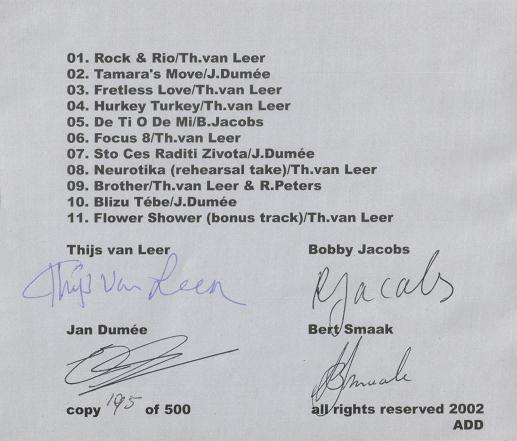 01. Rock & Rio/Th.van Leer
02. Tamara's Move/J.Dumée
03. Fretless Love/Th.van Leer
04. Hurkey Turkey/Th.van Leer
05. De Ti O De Mi/B.Jacobs
06. Focus 8/Th.van Leer
07. Sto Ces Raditi Zivota/J.Dumée
08. Neurotika (rehearsal take)/Th.van Leer
09. Brother/Th.van Leer & R.Peters
10. Blizu Tébe/J.Dumée
11. Flower Shower (bonus track)/Th.van Leer
Thijs van Leer Bobby Jacobs
Thijs van Leer Jacobs
Jan Dumée Bert Smaak
BSmaak
copy 195 of 500 all rights reserved 2002
ADD